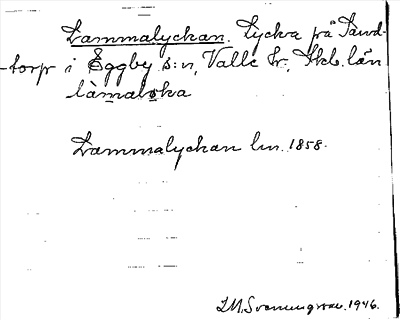 Lammalyckan. Lycka på Sand-
-torp i Eggby s:n, Valle hr., Skb. län
làmaløka
Lammalyckan lm. 1858.
I.M. Svenningsson. 1946.